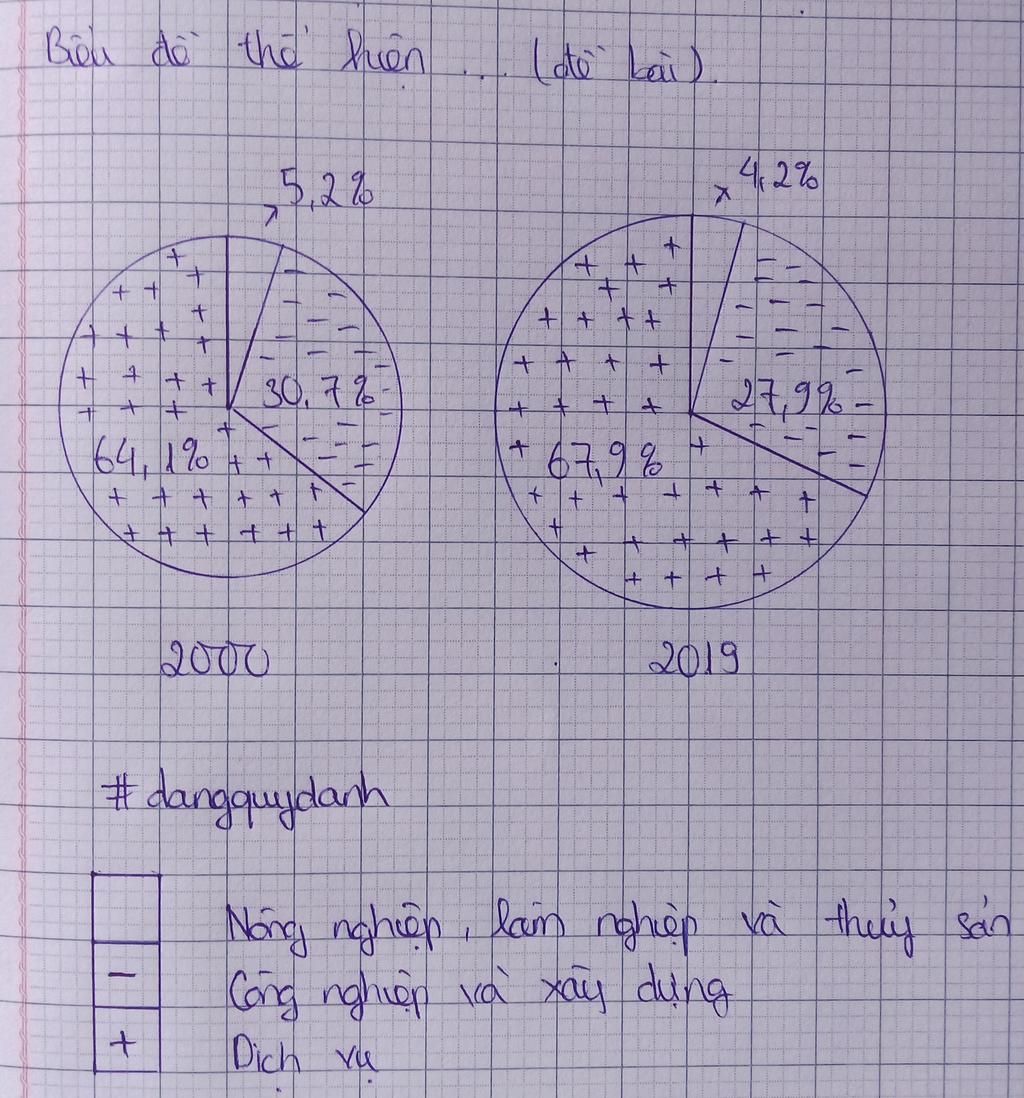 Biểu đồ thể hiện ... (đề bài).
5,2%
4,2%
30,7%
27,9%
64,1%
67,9%
2000
2019
#dangquydanh
Nông nghiệp, lâm nghiệp và thuỷ sản
- Công nghiệp và xây dựng
+ Dịch vụ